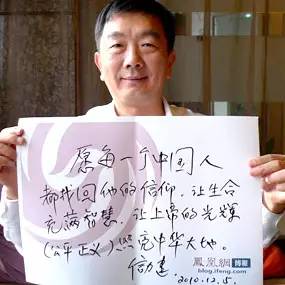 愿每一个中国人
都找回他的信仰，让生命
充满智慧，让上帝的光辉
(公平正义)照亮中华大地。
2010.12.5.
鳳凰網 博報
blog.ifeng.com